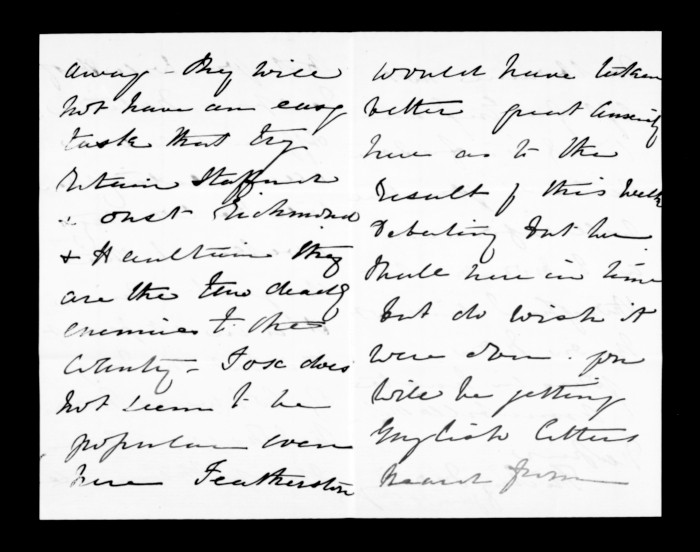 away - They will
not have an easy
task that try
retain Stafford
& oust Richmond
& Haultain they
are the two deadly
enemies to the
County - Fox does
not seem to be
popular even
here Featherston
would have taken
better great anxiety
here as to the
result of this week
Debating but we
shall hear in time
but do wish it
were over. you
will be getting
English letters
heard from